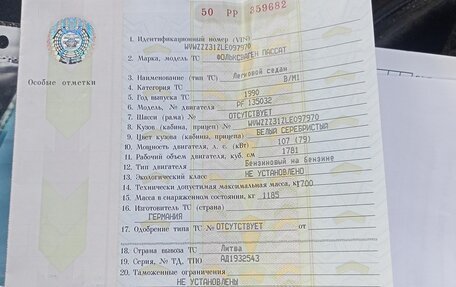 50 РР 359682
Особые отметки
1. Идентификационный номер (VIN)
WVWZZZ31ZLE097970
2. Марка, модель ТС ФОЛЬКСВАГЕН ПАССАТ
3. Наименование (тип ТС) Легковой седан
4. Категория ТС B/M1
5. Год выпуска ТС 1990
6. Модель, № двигателя PF 135032
7. Шасси (рама) № ОТСУТСТВУЕТ
8. Кузов (кабина, прицеп) № WVWZZZ31ZLE097970
9. Цвет кузова (кабины, прицепа) БЕЛЫЙ СЕРЕБРИСТЫЙ
10. Мощность двигателя, л. с. (кВт) 107 (79)
11. Рабочий объем двигателя, куб. см 1781
12. Тип двигателя Бензиновый на бензине
13. Экологический класс НЕ УСТАНОВЛЕНО
14. Технически допустимая максимальная масса, кг 1700
15. Масса в снаряженном состоянии, кг 1185
16. Изготовитель ТС (страна)
ГЕРМАНИЯ
17. Одобрение типа ТС № ОТСУТСТВУЕТ от
18. Страна вывоза ТС Литва
19. Серия, № ТД, ТПО АД1932543
20. Таможенные ограничения
НЕ УСТАНОВЛЕНЫ